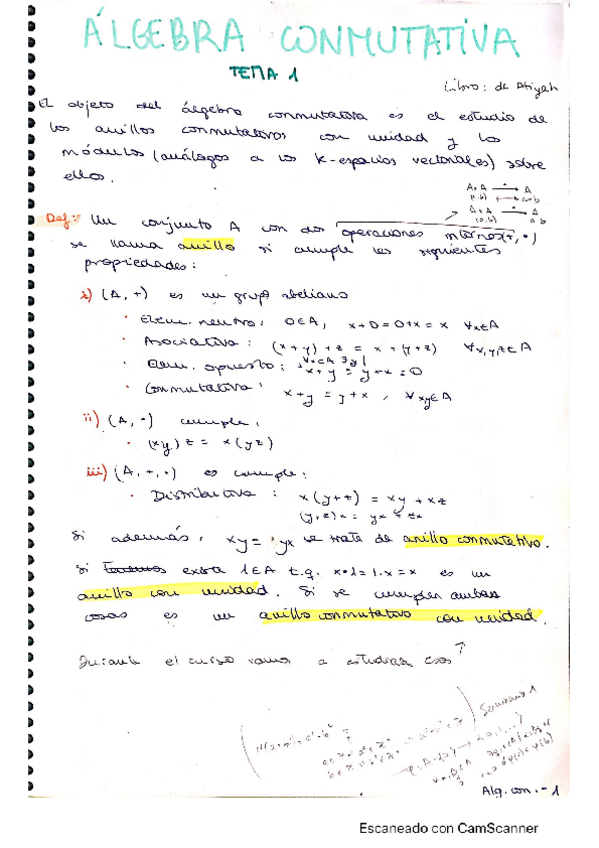 ÁLGEBRA CONMUTATIVA
TEMA 1
Libro: de Atiyah
El objeto del álgebra conmutativa es el estudio de
los anillos conmutativos con unidad y los
módulos (análogos a los K-espacios vectoriales) sobre
ellos.
A×A → A
(a,b) → a+b
A×A → A
(a,b) a·b
Def: Un conjunto A con dos operaciones internas(+, ·)
se llama anillo si cumple las siguientes
propiedades:
i) (A, +) es un grupo abeliano
· Elem. neutro: 0∈A, x+0=0+x=x ∀x∈A
· Asociativa: (x+y)+z = x+(y+z) ∀x,y,z∈A
· Elem. opuesto: ∀x∈A ∃y |
x+y = y+x = 0
· Conmutativa: x+y = y+x, ∀x,y∈A
ii) (A, ·) cumple:
· (xy)z = x(yz)
iii) (A, +, ·) cumple:
· Distributiva: x(y+z) = xy + xz
(y+z)x = yx + zx
Si además, xy = yx se trata de anillo conmutativo.
Si exista 1∈A t.q. x·1=1·x=x es un
anillo con unidad. Si se cumplen ambas
cosas es un anillo conmutativo con unidad.
Durante el curso vamos a estudiar esos
Semana 1
Alg. con. - 1
Escaneado con CamScanner